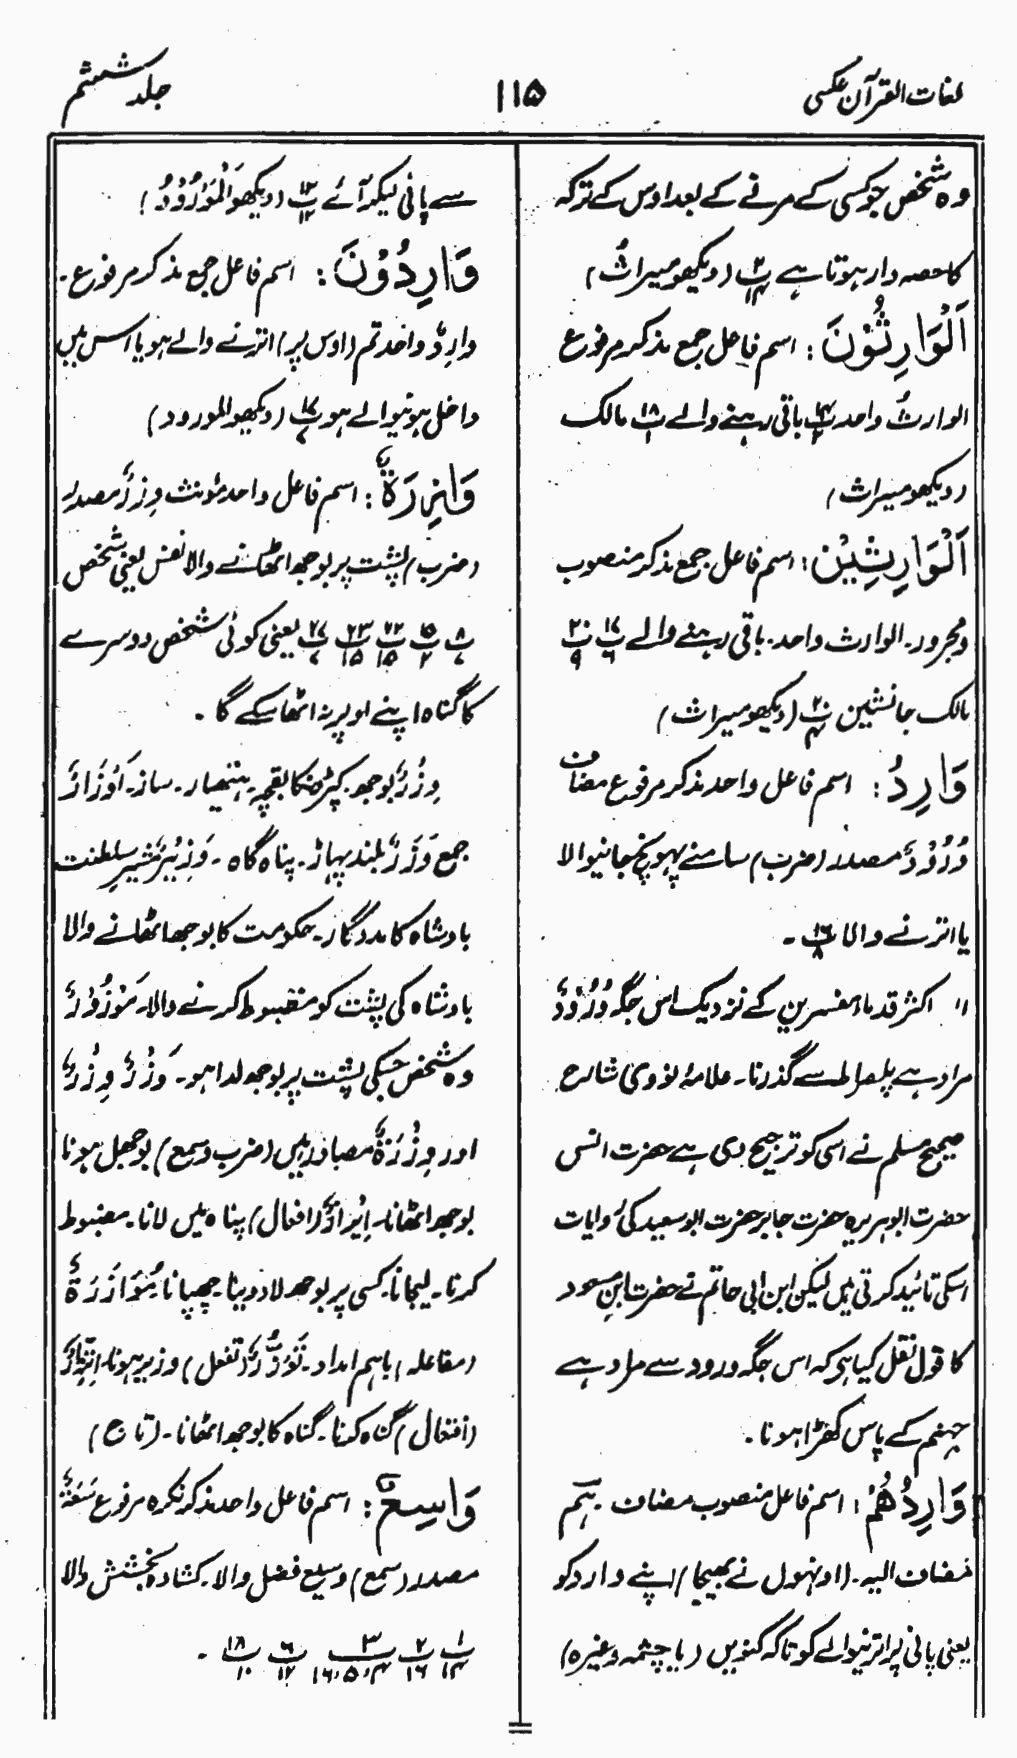 لغات القرآن عکسی
۱۱۵
جلد ششم
وہ شخص جو کسی کے مرنے کے بعد اوس کے ترکہ
کا حصہ دار ہوتا ہے پ۲ ۱۴ (دیکھو میراثُ)
اَلْوَارِثُوْنَ : اسم فاعل جمع مذکر مرفوع
الوارثُ واحد پ۱۴ ۲ باقی رہنے والے پ۱۸ ۱ مالک
(دیکھو میراث)
اَلْوَارِثِیْن : اسم فاعل جمع مذکر منصوب
ومجرور۔ الوارث واحد۔ باقی رہنے والے پ۱۷ ۶ پ۲۰ ۹
مالک جانشین پ۲۰ ۴ (دیکھو میراث)
وَارِدُ : اسم فاعل واحد مذکر مرفوع مضاف
وُرُوْدٌ مصدر (ضرب) سامنے پہونچ جانیوالا
یا اترنے والا پ۱۶ ۸ ۔
اکثر قدماء مفسرین کے نزدیک اس جگہ وُرُوْدٌ
مراد ہے پلصراط سے گذرنا۔ علامہ نووی شارح
صحیح مسلم نے اسی کو ترجیح دی ہے حضرت انس
حضرت ابوہریرہ حضرت جابر حضرت ابوسعید کی روایات
اسکی تائید کرتی ہیں لیکن ابن ابی حاتم نے حضرت ابن مسعود
کا قول نقل کیا ہے کہ اس جگہ ورود سے مراد ہے
جہنم کے پاس کھڑا ہونا۔
وَارِدُهُمْ : اسم فاعل منصوب مضاف ہُم
مضاف الیہ۔ (اونہوں نے بھیجا) اپنے وارد کو
یعنی پانی پر اترنیوالے کو تاکہ کنویں (یا چشمہ وغیرہ)
سے پانی لیکر آئے پ۱۲ ۱۲ (دیکھو اَلْمَوْرُوْدُ)
وَارِدُوْنَ : اسم فاعل جمع مذکر مرفوع۔
وارِدٌ واحد تم (اوس پر) اترنے والے ہو یا اس میں
داخل ہونیوالے ہو پ۱۷ ۷ (دیکھو المورود)
وَازِرَةٌ : اسم فاعل واحد مؤنث وِزْرٌ مصدر
(ضرب) پشت پر بوجھ اٹھانے والا نفس یعنی شخص
پ۸ ۷ پ۱۵ ۲ پ۲۲ ۱۵ پ۲۳ ۱۵ پ۲۷ ۷ یعنی کوئی شخص دوسرے
کا گناہ اپنے اوپر نہ اٹھا سکے گا ۔
وِزْرٌ بوجھ۔ کپڑونکا بقچہ۔ ہتھیار۔ ساز۔ اَوْزَارٌ
جمع وَزَرٌ بلند پہاڑ۔ پناہ گاہ ۔ وَزِیْرٌ مشیر سلطنت
بادشاہ کا مددگار۔ حکومت کا بوجھ اٹھانے والا
بادشاہ کی پشت کو مضبوط کرنے والا۔ مَوْزُوْرٌ
وہ شخص جسکی پشت پر بوجھ لدا ہو۔ وَزْرٌ وِزْرٌ
اور وِزْرَةٌ مصادر ہیں (ضرب وسمع) بوجھل ہونا
بوجھ اٹھانا۔ اِیْزَارٌ (افعال) پناہ میں لانا۔ مضبوط
کرنا۔ لیجانا۔ کسی پر بوجھ لاد دینا۔ چھپانا مُوَازَرَةٌ
(مفاعلہ) باہم امداد۔ تَوَزُّرٌ (تفعل) وزیر ہونا۔ اِتِّزَارٌ
(افتعال) گناہ کرنا۔ گناہ کا بوجھ اٹھانا۔ (تاج)
وَاسِعٌ : اسم فاعل واحد مذکر نکرہ مرفوع سَعَةٌ
مصدر (سمع) وسیع فضل والا۔ کشادہ بخشش والا
پ۱ ۱۴ پ۲ ۱۶ پ۳ ۴،۵،۱۶ پ۶ ۱۲ پ۱۸ ۱۰ ۔